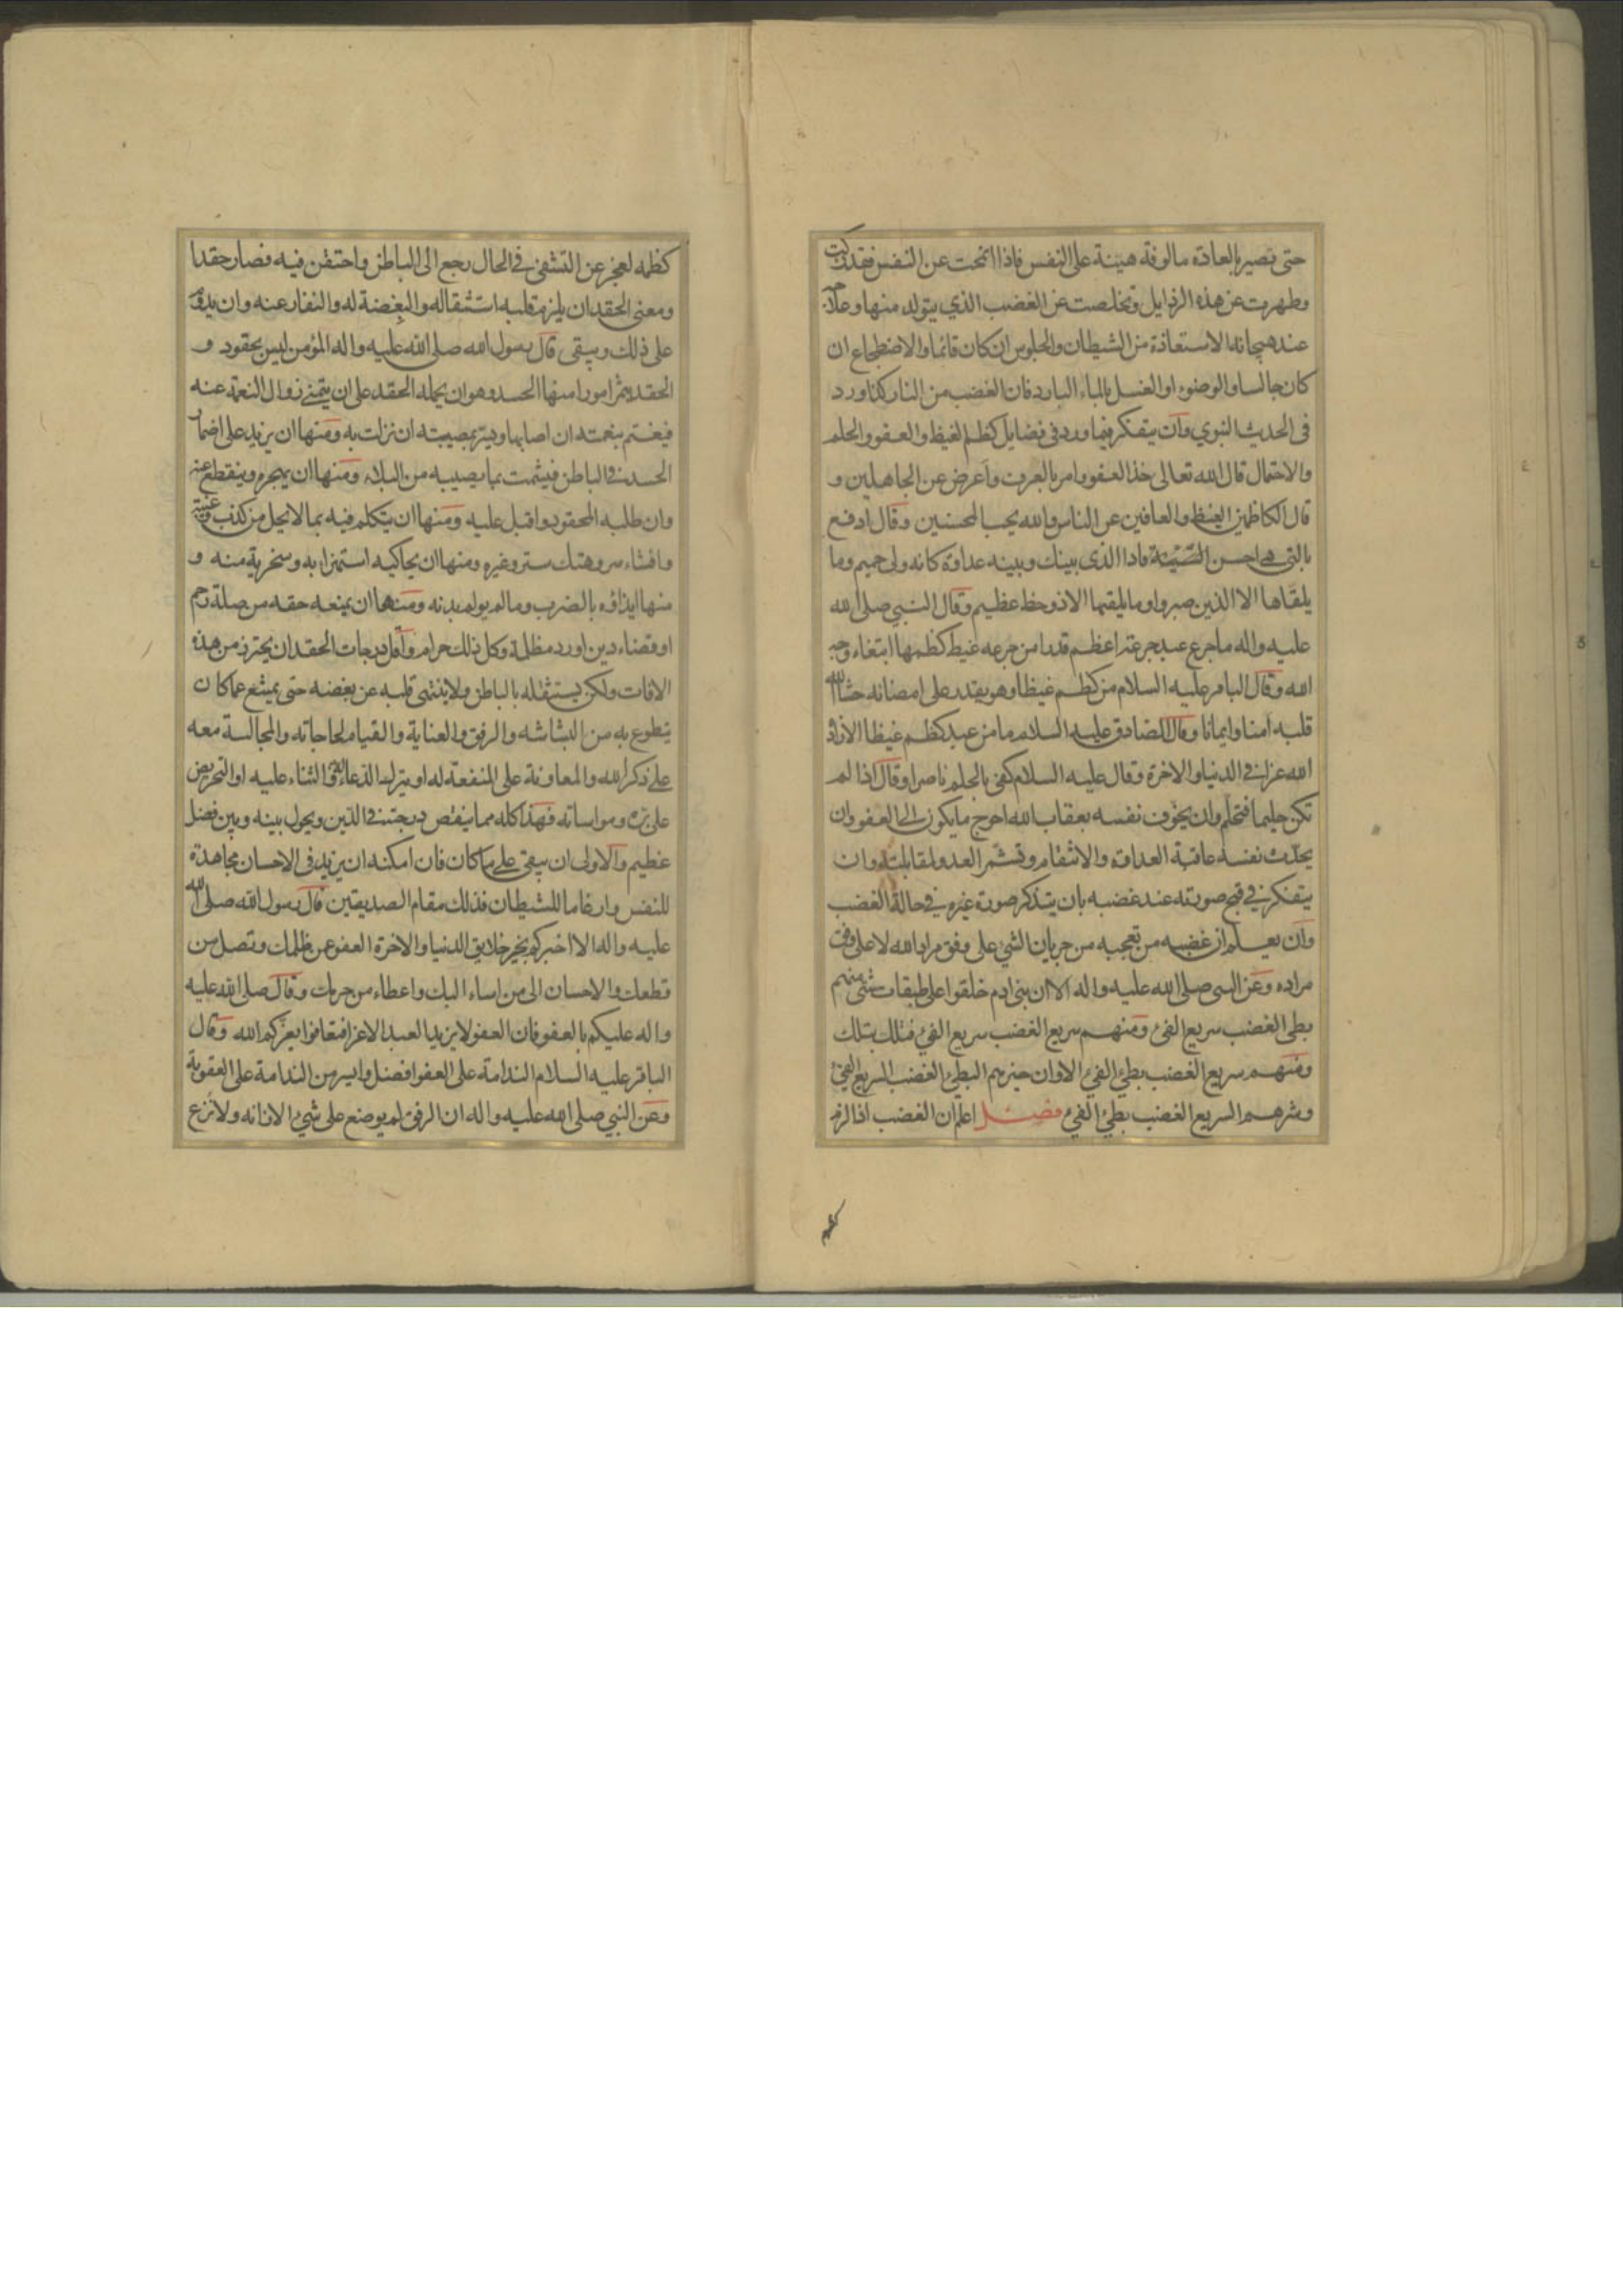 حتى تصير بالعادة مالوفة هينة على النفس فاذا انمحت عن النفس فقد زكت
وطهرت عن هذه الرذايل وتخلصت عن الغضب الذي يتولد منها وعلاجه
عند هيجانه الاستعاذة من الشيطان والجلوس ان كان قائما والاضطجاع ان
كان جالسا والوضوء او الغسل بالماء البارد فان الغضب من النار كذا ورد
فى الحديث النبوي وان يتفكر فيما ورد فى فضايل كظم الغيظ والعفو والحلم
والاحتمال قال الله تعالى خذ العفو وامر بالعرف واعرض عن الجاهلين و
قال الكاظمين الغيظ والعافين عن الناس والله يحب المحسنين وقال ادفع
بالتي هى احسن السّيّئة فاذا الذى بينك وبينه عداوة كانه ولى حميم وما
يلقّاها الا الذين صبروا وما يلقيها الا ذو حظ عظيم وقال النبي صلى الله
عليه واله ما جرع عبد جرعة اعظم قدرا من جرعه غيظ كظمها ابتغاء وجه
الله وقال الباقر عليه السلام من كظم غيظا وهو يقدر على امضائه حشا الله
قلبه امنا وايمانا وقال الصادق عليه السلام ما من عبد كظم غيظا الا زاد
الله عزا في الدنيا والاخرة وقال عليه السلام كفى بالحلم ناصرا وقال اذا لم
تكن حليما فتحلم وان يخوّف نفسه بعقاب الله احوج ما يكون الى العفو وان
يحدّث نفسه عاقبة العداوة والانتقام وتشمّر العدو لمقابلته وان
يتفكر في قبح صورته عند غضبه بان يتذكر صورة غيره في حالة الغضب
وان يعلم ان غضبه من تعجبه من جريان الشئ على وفق مراد الله لا على وفق
مراده وعن النبى صلى الله عليه واله الا ان بنى ادم خلقوا على طبقات شتى منهم
بطى الغضب سريع الفئ ومنهم سريع الغضب سريع الفئ فتلك بتلك
ومنهم سريع الغضب بطئ الفئ الا وان خيرهم البطئ الغضب السريع الفئ
وشرهم السريع الغضب بطئ الفئ فصل اعلم ان الغضب اذا لزم
كظمه لعجز عن التشفى في الحال رجع الى الباطن واحتقن فيه فصار حقدا
ومعنى الحقد ان يلزم قلبه استثقاله والبغضة له والنفار عنه وان يدوم
على ذلك ويبقى قال رسول الله صلى الله عليه واله المؤمن ليس بحقود و
الحقد يثمر امورا منها الحسد وهو ان يحمله الحقد على ان يتمنى زوال النعمة عنه
فيغتم بنعمته ان اصابها ويسر بمصيبته ان نزلت به ومنها ان يزيد على اضمار
الحسد فى الباطن فيشمت بما يصيبه من البلاء ومنها ان يهجره وينقطع عنه
وان طلبه المحقود واقبل عليه ومنها ان يتكلم فيه بما لا يحل من كذب وغيبة
وافشاء سر وهتك ستر وغيره ومنها ان يحاكيه استهزاء به وسخرية منه و
منها ايذاؤه بالضرب وما لم يولم بدنه ومنها ان يمنعه حقه من صلة رحم
او قضاء دين او رد مظلمة وكل ذلك حرام واقل درجات الحقد ان يحترز من هذه
الافات ولكن يستثقله بالباطن ولا ينتهى قلبه عن بغضه حتى يمتنع عما كان
يتطوع به من البشاشه والرفق والعناية والقيام لحاجاته والمجالسة معه
على ذكر الله والمعاونة على المنفعة له او يترك الدعاء له والثناء عليه او التحريض
على بره ومواساته فهذا كله مما ينقص درجته في الدّين ويحول بينه وبين فضل
عظيم والاولى ان يبقى على ما كان فان امكنه ان يزيد فى الاحسان مجاهدة
للنفس وارغاما للشيطان فذلك مقام الصديقين قال رسول الله صلى الله
عليه واله الا اخبركم بخير خلايق الدنيا والاخرة العفو عمن ظلمك وتصل من
قطعك والاحسان الى من اساء اليك واعطاء من حرمك وقال صلى الله عليه
واله عليكم بالعفو فان العفو لا يزيد العبد الا عزا فتعافوا يعزّكم الله وقال
الباقر عليه السلام الندامة على العفو افضل وايسر من الندامة على العقوبة
وعن النبي صلى الله عليه واله ان الرفق لم يوضع على شئ الا زانه ولا نزع